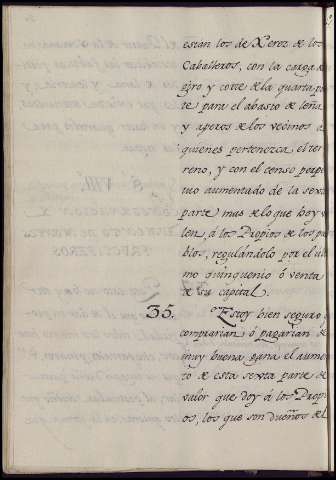 estan los de Xerez de los
Caballeros, con la carga de
giro y corte de la quarta par
te para el abasto de leña,
y aperos de los vecinos a
quienes pertenezca el ter
reno, y con el censo perpe
tuo aumentado de la sexta
parte mas de lo que hoy va
len, á los Propios de los pue
blos, regulándolo por el últi
mo quinquenio ó venta
de su capital.
35. Estoy bien seguro
comprarian ó pagarian de
muy buena gana el aumen
to de esta sexta parte de
valor que doy á los Propi
os, los que son dueños del